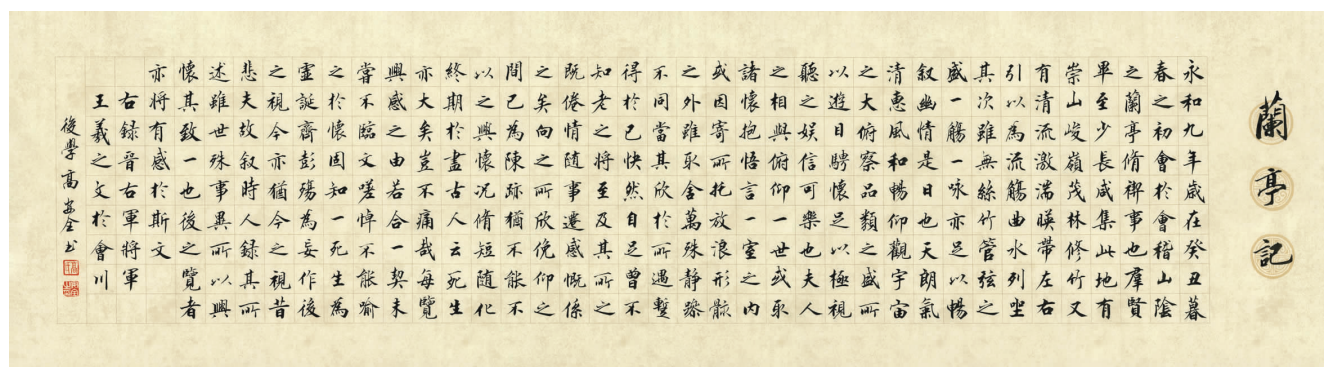 蘭亭記
永和九年歲在癸丑暮
春之初會於會稽山陰
之蘭亭脩禊事也羣賢
畢至少長咸集此地有
崇山峻嶺茂林修竹又
有清流激湍暎帶左右
引以為流觴曲水列坐
其次雖無絲竹管弦之
盛一觴一咏亦足以暢
叙幽情是日也天朗氣
清惠風和暢仰觀宇宙
之大俯察品類之盛所
以遊目騁懷足以極視
聽之娱信可樂也夫人
之相與俯仰一世或取
諸懷抱悟言一室之內
或因寄所托放浪形骸
之外雖取舍萬殊静躁
不同當其欣於所遇蹔
得於己快然自足曾不
知老之將至及其所之
既倦情随事遷感慨係
之矣向之所欣俛仰之
間已為陳跡猶不能不
以之興懷况脩短随化
終期於盡古人云死生
亦大矣豈不痛哉每覽
興感之由若合一契未
嘗不臨文嗟悼不能喻
之於懷固知一死生為
虛誕齊彭殤為妄作後
之視今亦猶今之視昔
悲夫故叙時人録其所
述雖世殊事異所以興
懷其致一也後之覽者
亦將有感於斯文
右録晋右軍將軍
王羲之文於會川
後學高全书